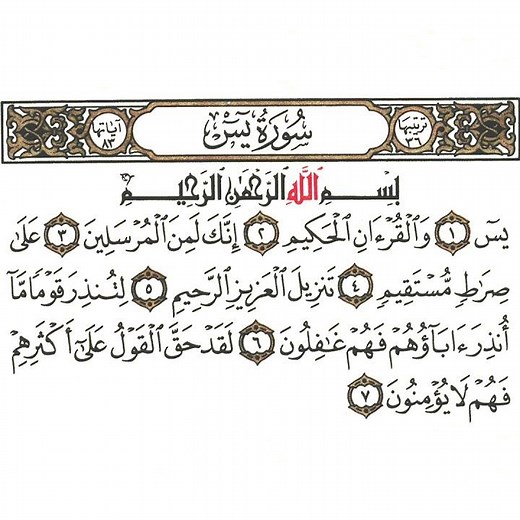 ترتيبها ٣٦ سُورَةُ يسٓ آياتها ٨٣
بِسْمِ ٱللَّهِ ٱلرَّحْمَٰنِ ٱلرَّحِيمِ
يسٓ ١ وَٱلْقُرْءَانِ ٱلْحَكِيمِ ٢ إِنَّكَ لَمِنَ ٱلْمُرْسَلِينَ ٣ عَلَىٰ
صِرَٰطٍ مُّسْتَقِيمٍ ٤ تَنزِيلَ ٱلْعَزِيزِ ٱلرَّحِيمِ ٥ لِتُنذِرَ قَوْمًا مَّآ
أُنذِرَ ءَابَآؤُهُمْ فَهُمْ غَٰفِلُونَ ٦ لَقَدْ حَقَّ ٱلْقَوْلُ عَلَىٰٓ أَكْثَرِهِمْ
فَهُمْ لَا يُؤْمِنُونَ ٧